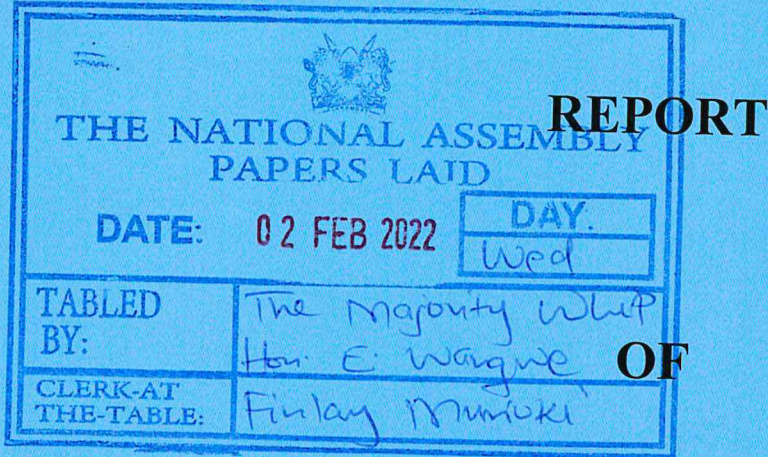 REPORT
THE NATIONAL ASSEMBLY
PAPERS LAID
DATE: 02 FEB 2022
DAY.
Wed
TABLED
BY:
The Majority Whip
Hon. E. Wangwe
OF
CLERK-AT
THE-TABLE:
Finlay Muriuki